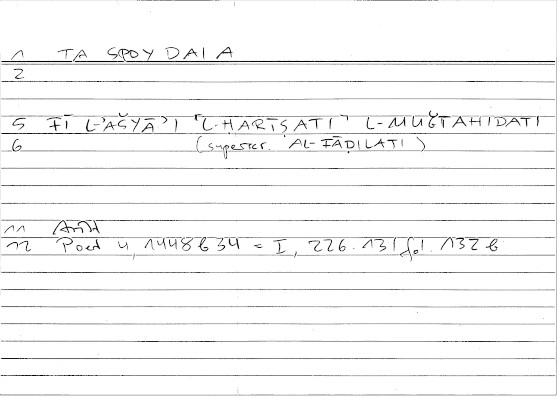 1 TA SPOYDAIA
2
5 FĪ L-ʾAŠYĀʾI ⸢L-ḤARĪṢATI⸣ L-MUǦTAHIDATI
6 (superscr. AL-FĀḌILATI)
11 Arist
12 Poet 4, 1448b34 = I, 226.131 fol. 132b